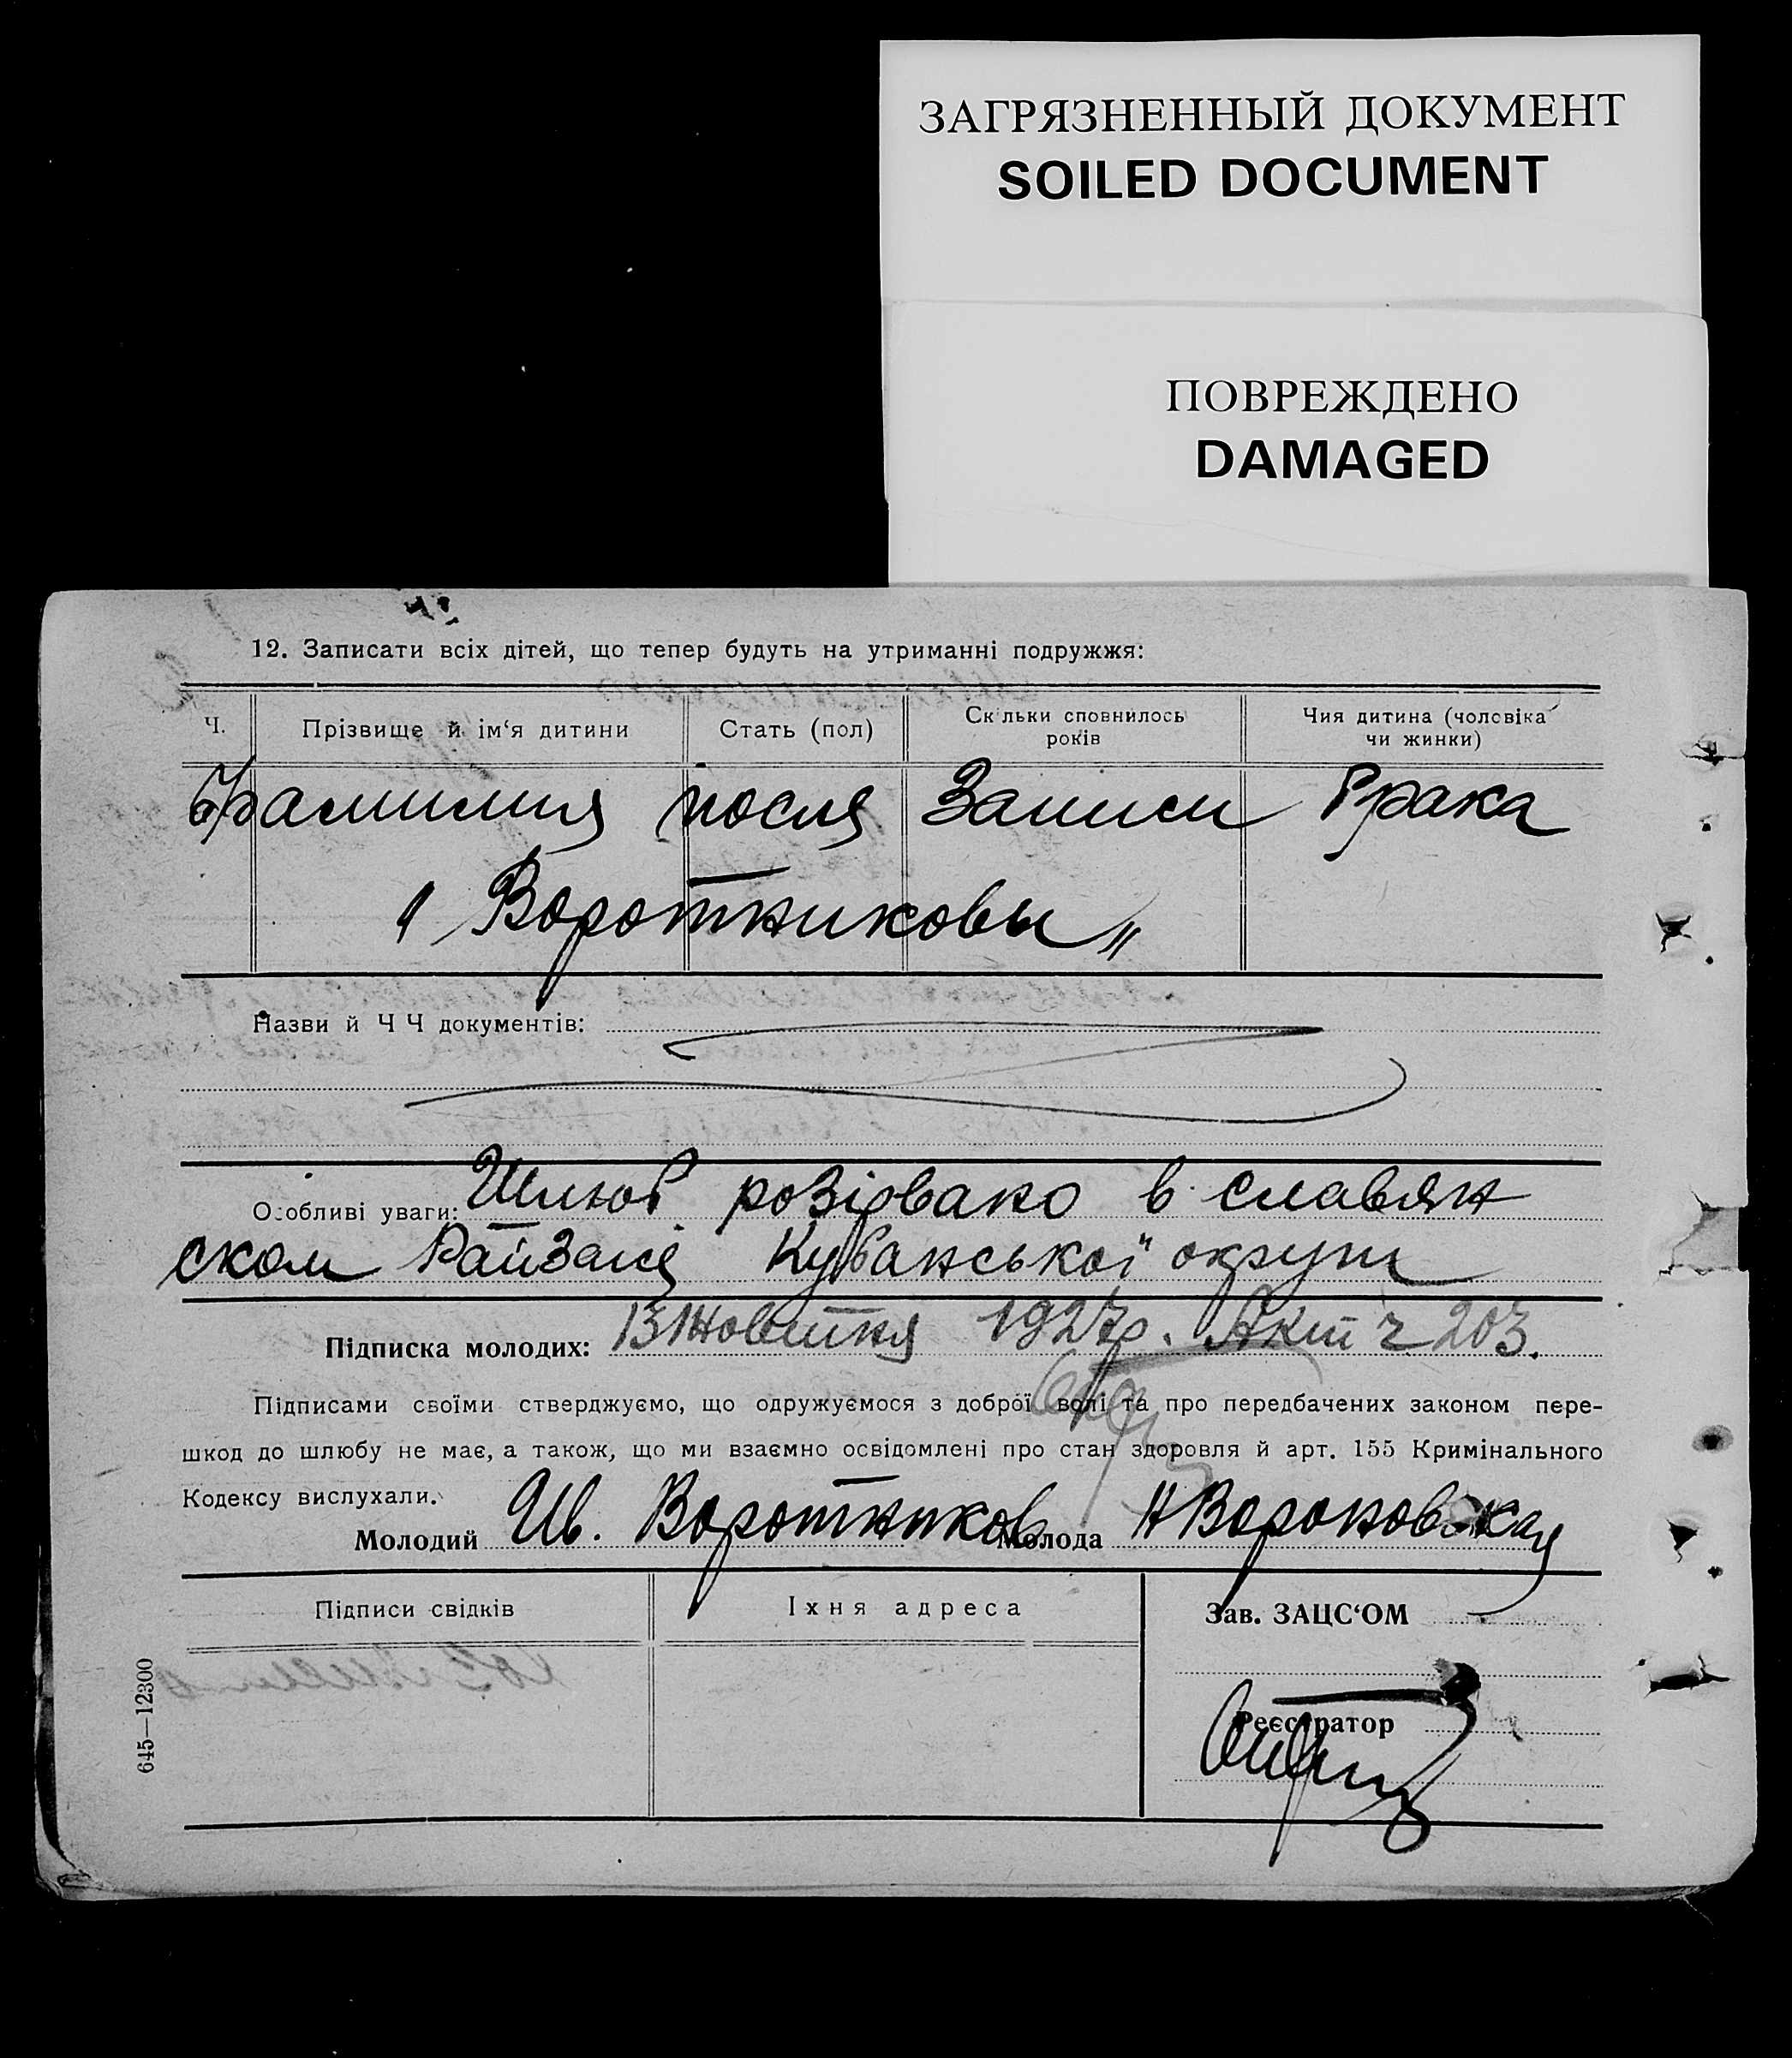 ЗАГРЯЗНЕННЫЙ ДОКУМЕНТ
SOILED DOCUMENT
ПОВРЕЖДЕНО
DAMAGED
12. Записати всіх дітей, що тепер будуть на утриманні подружжя:
Ч. Прізвище й ім‘я дитини Стать (пол) Скільки сповнилось років Чия дитина (чоловіка чи жинки)
Фамилия после Записи Брака
„Воротниковы„
Назви й Ч Ч документів:
Особливі уваги: Шлюб розірвано в Славян
ском Кубанської округи
Підписка молодих: 13 Жовтня 1927р. Акт ч 203.
Підписами своїми стверджуємо, що одружуємося з доброї волі та про передбачених законом пере-
шкод до шлюбу не має, а також, що ми взаємно освідомлені про стан здоровля й арт. 155 Кримінального
Кодексу вислухали.
Молодий Ив. Воротников Молода Н Вороновская
Підписи свідків Їхня адреса Зав. ЗАЦС‘ОМ
Реєстратор
645—12300